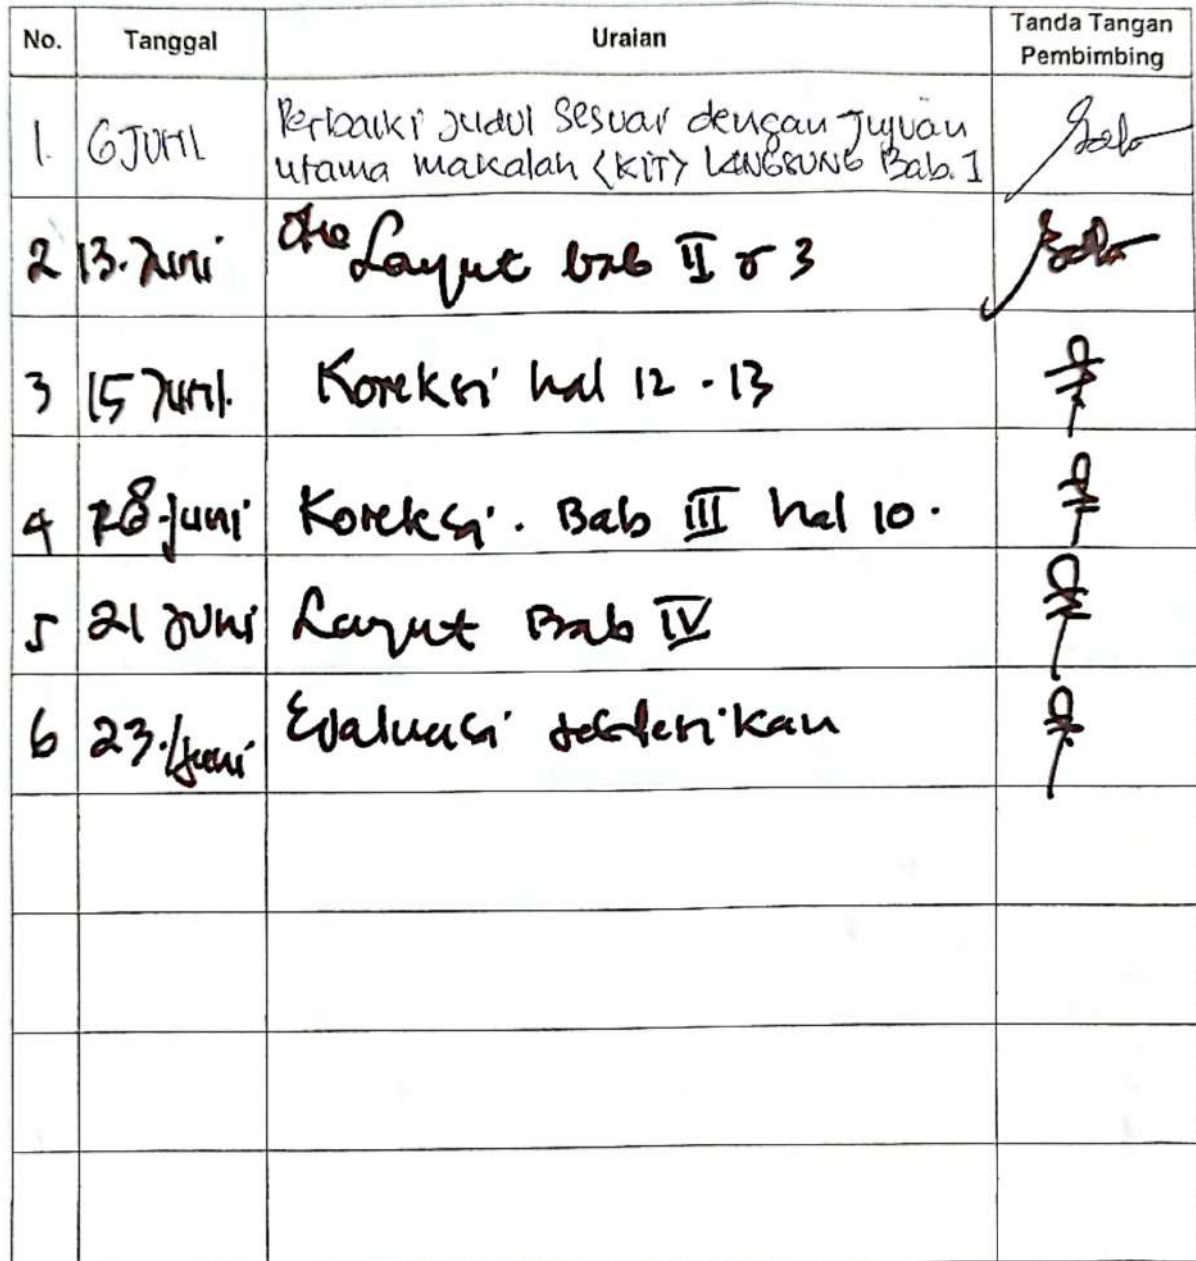 No. Tanggal Uraian Tanda Tangan
Pembimbing
1. 6 Juni Perbaiki Judul Sesuai dengan Tujuan
utama makalah (KIT) LANGSUNG Bab. I
2 13. Juni Layut bab II & 3
3 15 Juni. Koreksi hal 12 - 13
4 18 juni Koreksi. Bab III hal 10.
5 21 Juni Layut Bab IV
6 23. Juni Evaluasi